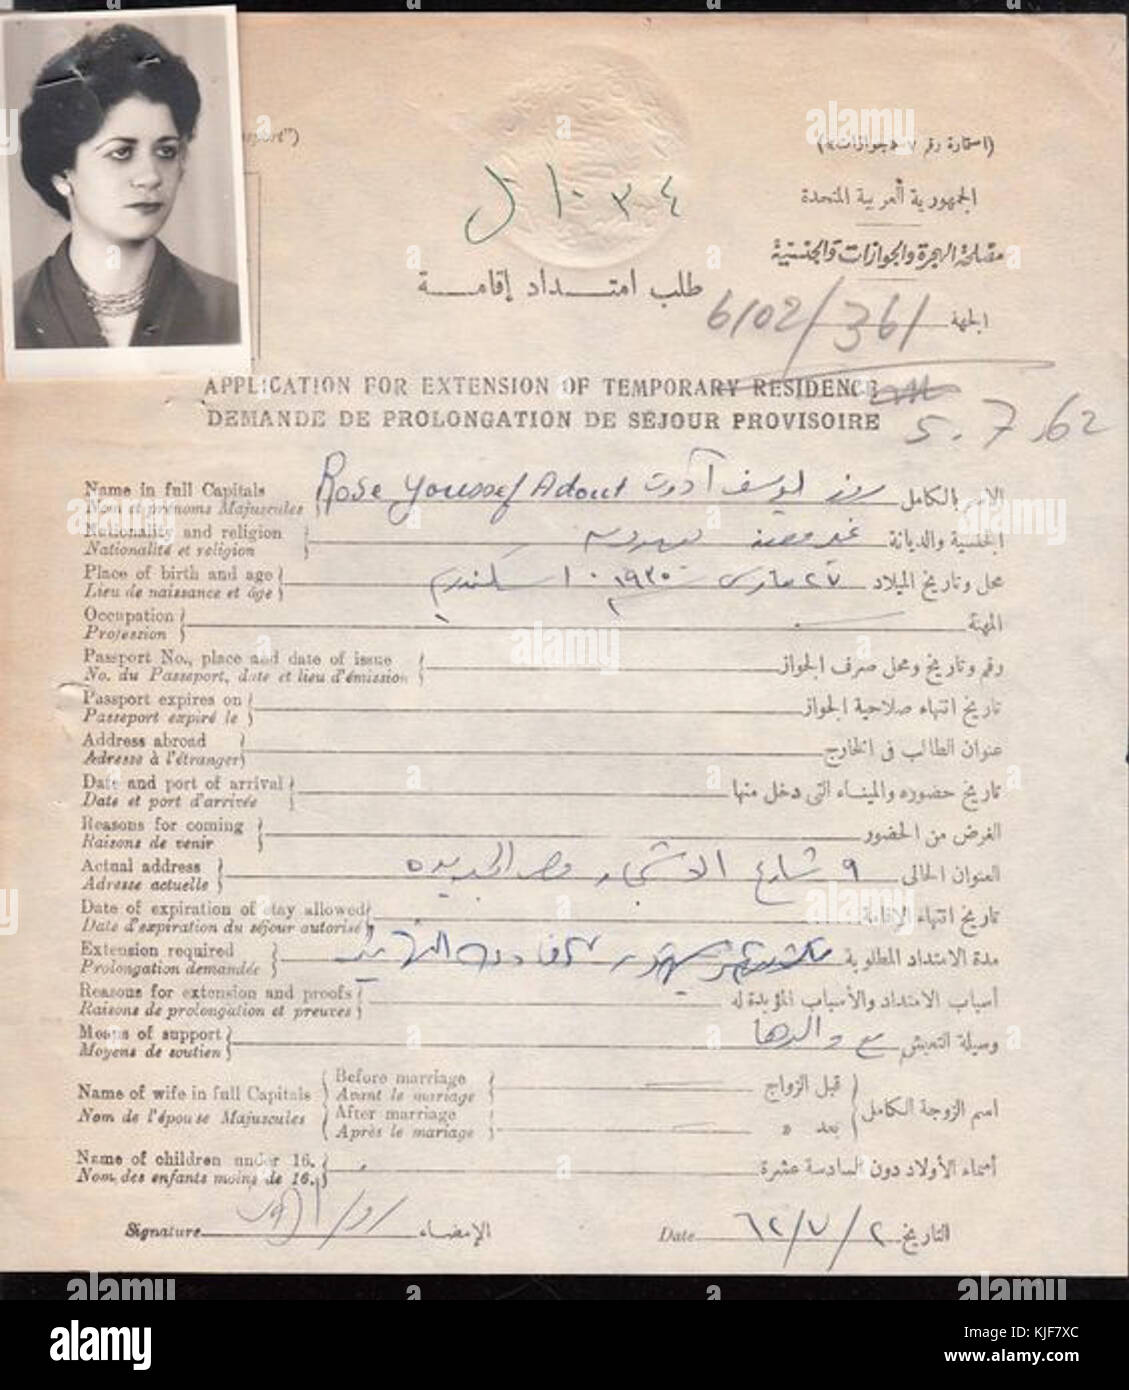 port")
(استمارة رقم ٧ «جوازات»)
الجمهورية العربية المتحدة
مصلحة الهجرة والجوازات والجنسية
١٠٣٤
طلب امتداد إقامة
الجهة 6102/361
APPLICATION FOR EXTENSION OF TEMPORARY RESIDENCE
DEMANDE DE PROLONGATION DE SÉJOUR PROVISOIRE
5.7.62
Name in full Capitals
Nom et prénoms Majuscules
Rose Youssef Adout روز يوسف آدوت الاسم بالكامل
Nationality and religion
Nationalité et religion
غير معينة يهودية الجنسية والديانة
Place of birth and age
Lieu de naissance et âge
محل وتاريخ الميلاد ٢٧ مارس ١٩٣٥ اسكندرية
Occupation
Profession
المهنة
Passport No., place and date of issue
No. du Passeport, date et lieu d'émission
رقم وتاريخ ومحل صرف الجواز
Passport expires on
Passeport expiré le
تاريخ انتهاء صلاحية الجواز
Address abroad
Adresse à l'étranger
عنوان الطالب فى الخارج
Date and port of arrival
Date et port d'arrivée
تاريخ حضوره والميناء التى دخل منها
Reasons for coming
Raisons de venir
الغرض من الحضور
Actual address
Adresse actuelle
العنوان الحالى ٩ شارع الاشجار مصر الجديده
Date of expiration of stay allowed
Date d'expiration du séjour autorisé
تاريخ انتهاء الإقامة
Extension required
Prolongation demandée
مدة الامتداد المطلوبة
Reasons for extension and proofs
Raisons de prolongation et preuves
أسباب الامتداد والأسباب المؤيدة له
Means of support
Moyens de soutien
وسيلة التعيش مع والدها
Name of wife in full Capitals
Nom de l'épouse Majuscules
Before marriage
Avant le mariage
After marriage
Après le mariage
قبل الزواج
بعد »
اسم الزوجة الكامل
Name of children under 16.
Nom des enfants moins de 16.
أسماء الأولاد دون السادسة عشرة
Signature الإمضاء
Date ٦٢/٧/٢ التاريخ
alamy
Image ID: KJF7XC
www.alamy.com